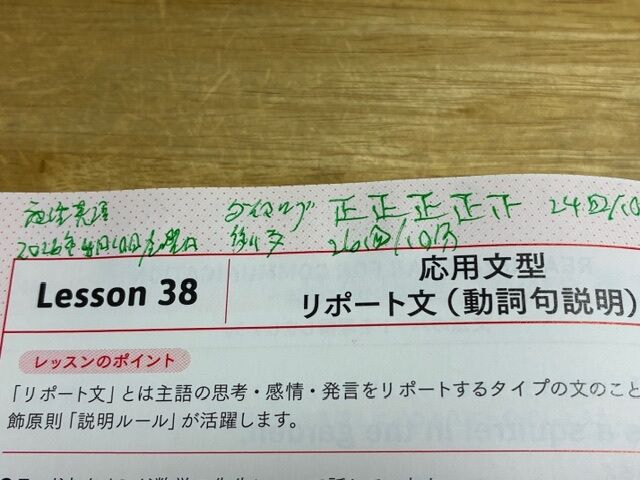 瞬発英語 タイミング 正正正正正 24回/10
2026年4月10日金曜日 終了 26回/10分
Lesson 38
応用文型
リポート文（動詞句説明）
レッスンのポイント
「リポート文」とは主語の思考・感情・発言をリポートするタイプの文のこと
飾原則「説明ルール」が活躍します。